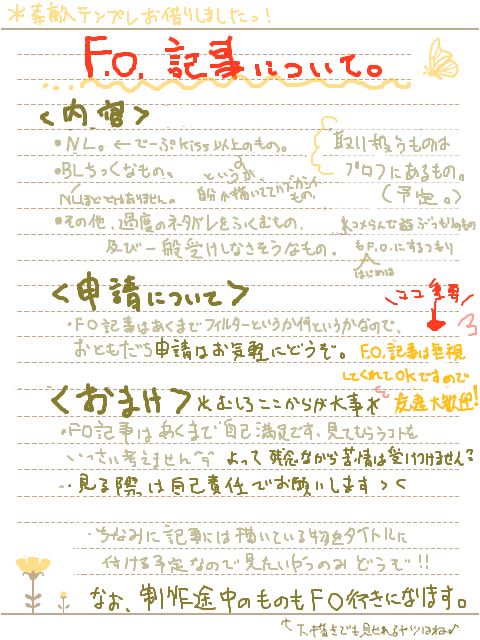 *素敵テンプレお借りしましたっ!
F.O.記事について。
<内容>
・NL。←でーぷkiss以上のもの。
・BLちっくなもの。
というか、
NLほどではありません。
自分が描いていてハズカシイもの。
・その他、過度のネタバレをふくむもの、
及び一般受けしなさそうなもの。
取り扱うものは
プロフにあるもの。
(予定。)
*コメらんな遊ぶつもりのもの
もF.O.にするつもり
はじめは
<申請について>
・FO記事はあくまでフィルターというか何というかなので、
おともだち申請はお気軽にどうぞ。
ココ重要
F.O.記事は無視
してくれてOKですので
友達大歓迎!
<おまけ>*むしろここからが大事*
・FO記事はあくまで自己満足です、見てもらうコトを
いっさい考えません
よって残念ながら苦情は受け付けません?
・見る際は自己責任でお願いします><
・ちなみに記事には描いている物をタイトルに
付ける予定なので見たいやつのみどうぞ!!
なお、制作途中のものもFO行きになります。
↑下描きでも見せれるヤツはね♪